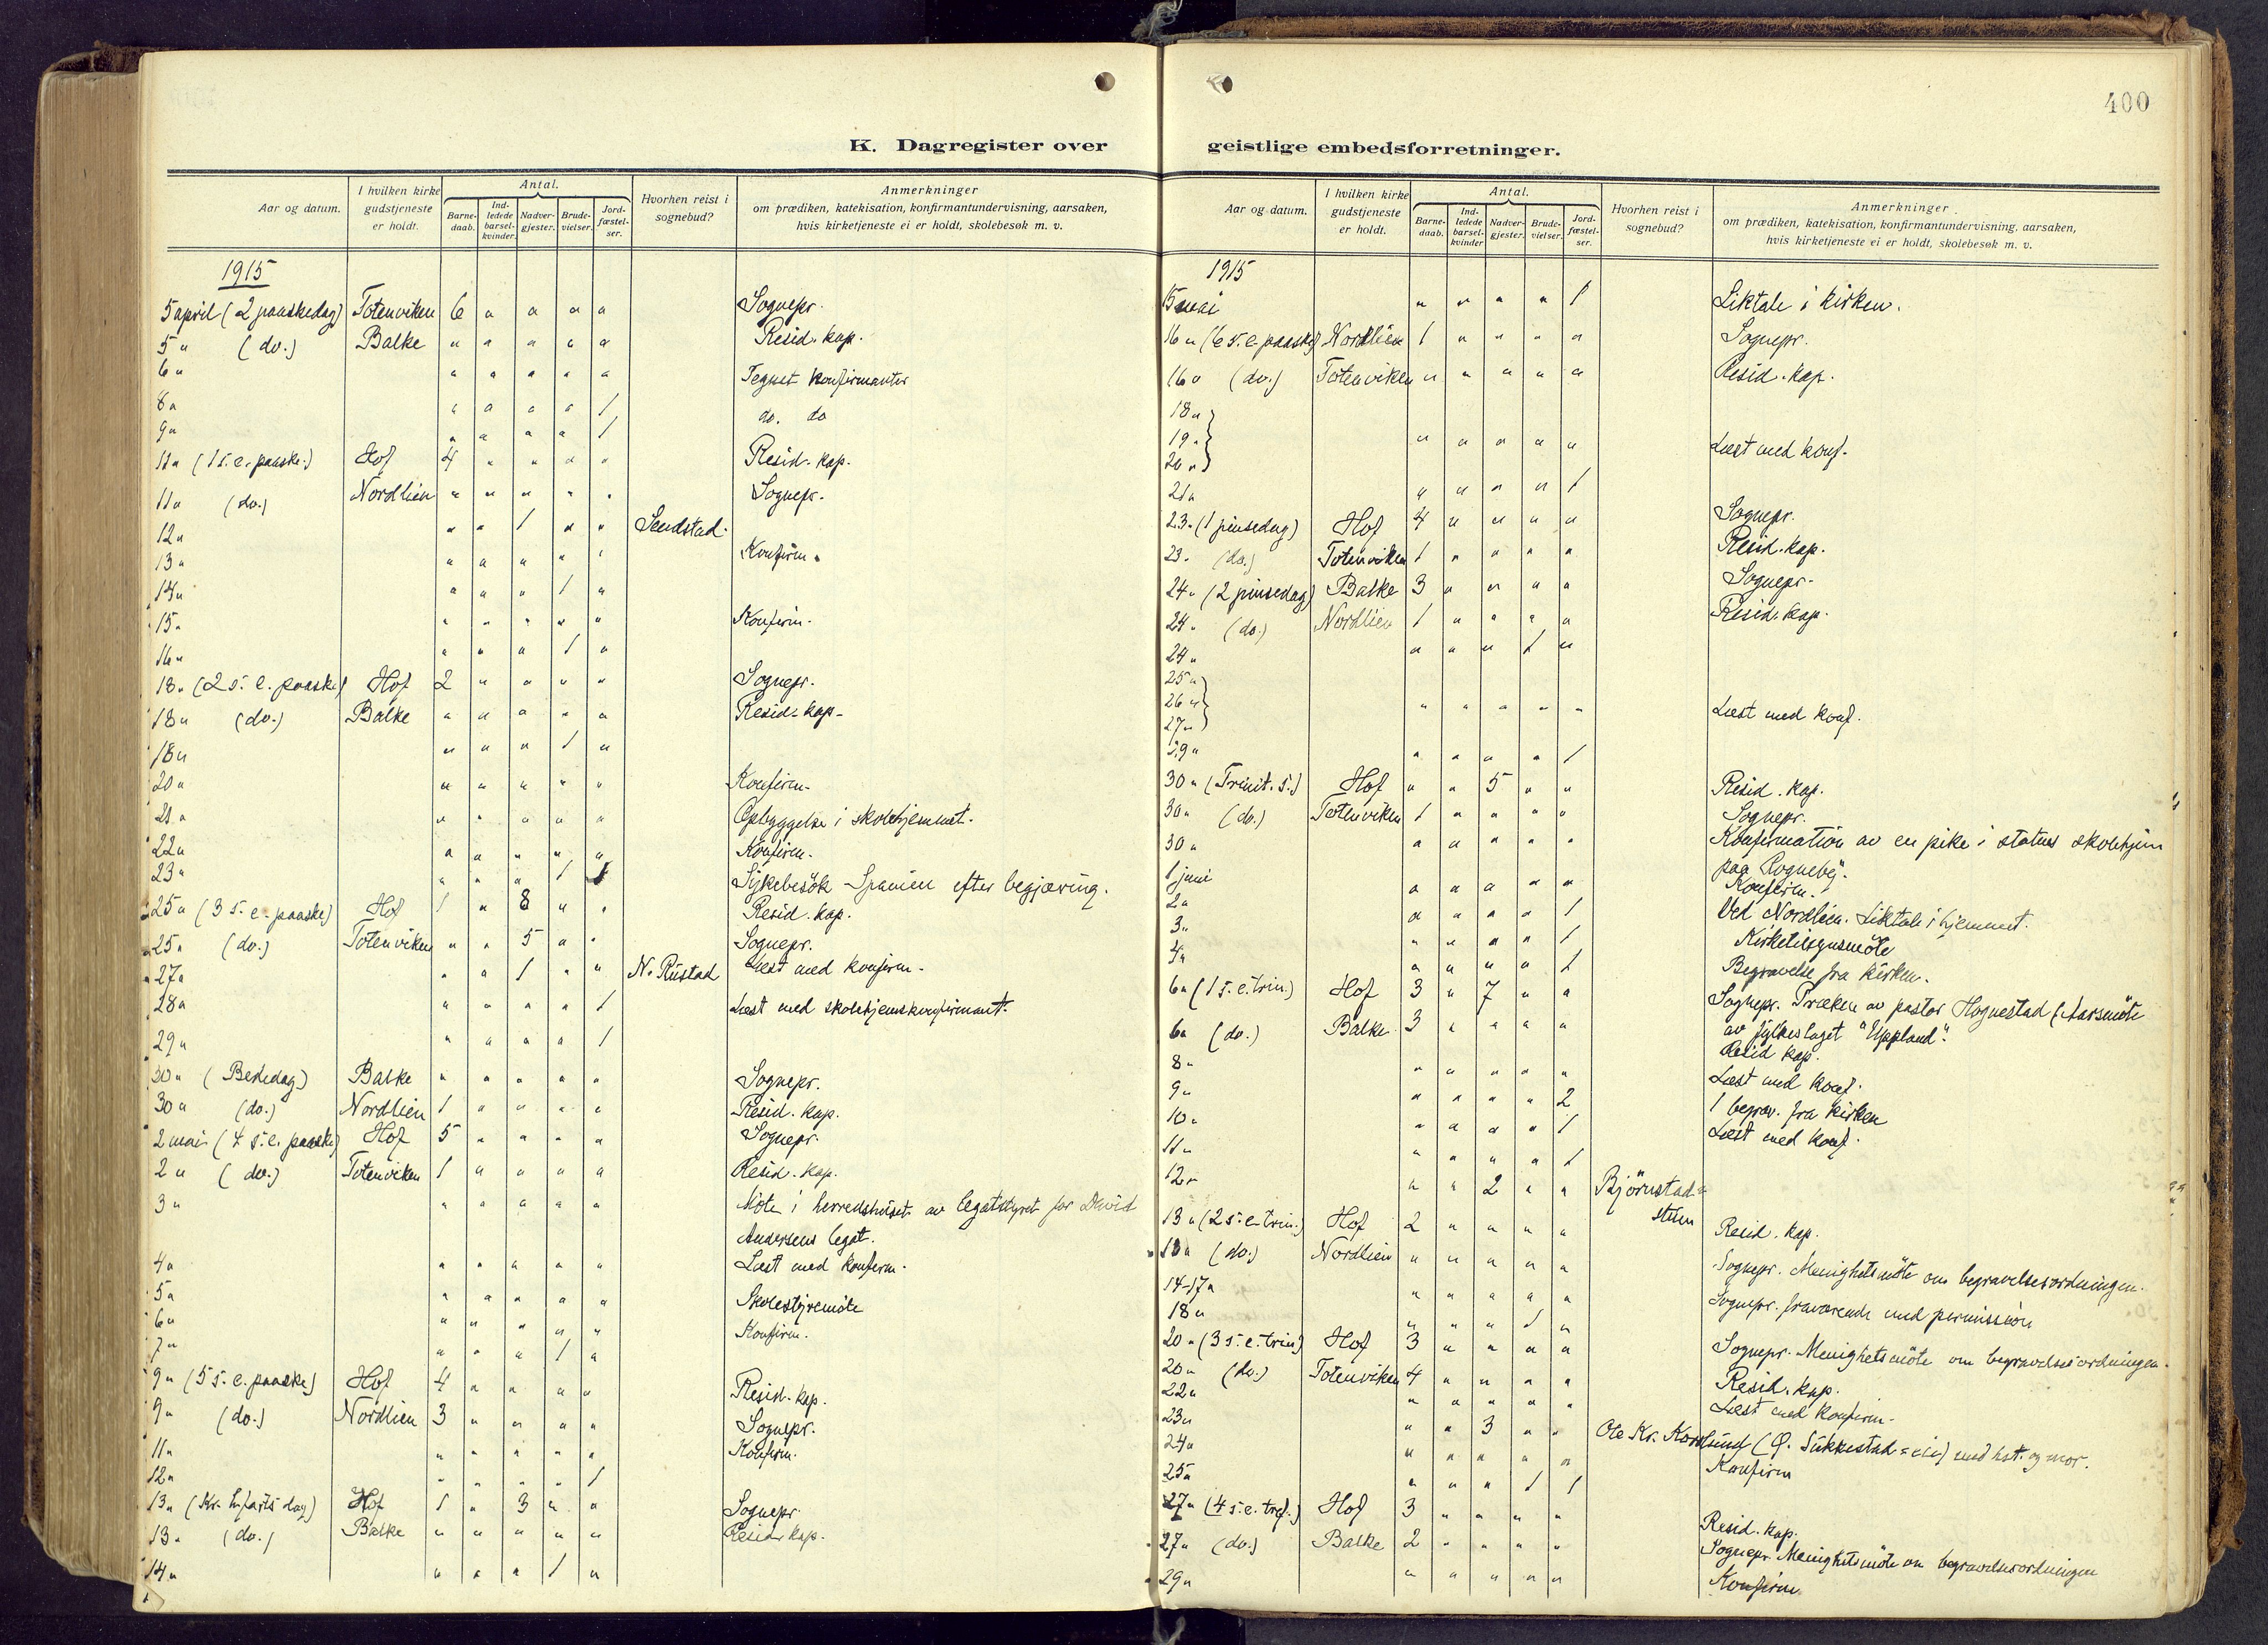 400
K. Dagregister over
geistlige embedsforretninger.
Aar og datum.
I hvilken kirke gudstjeneste er holdt.
Antal.
Barne-daab.
Ind-ledede barsel-kvinder.
Nadver-gjester.
Brude-vielser.
Jord-fæstel-ser.
Hvorhen reist i sognebud?
Anmerkninger
om prædiken, katekisation, konfirmantundervisning, aarsaken,
hvis kirketjeneste ei er holdt, skolebesøk m. v.
1915
5 april (2 paaskedag) Totenviken 6 " " " " Sognepr.
5 " (do.) Balke " " " " " Resid. kap.
6 " " " " " " Tegnet konfirmanter
8 " " " " " 1 do. do
9 " " " " " 1
11 " (1 s. e. paaske.) Hof 4 " " " " Resid. kap.
11 " (do.) Nordlien " " " " " Sognepr.
12 " " " 1 " " Sendstad.
13 " " " " " " Konfirm.
14 " " " " 1 "
15 " " " " " " Konfirm.
16 " " " " 1 "
18 " (2 s. e. paaske) Hof 2 " " " " Sognepr.
18 " (do.) Balke " " " " " Resid. kap.
18 " " " " 1 "
20 " " " " " " Konfirm.
21 " " " " " " Opbyggelse i skolehjemmet.
22 " " " " " " Konfirm.
23 " " " " 1 1 Sykebesök Spanien efter begjæring.
25 " (3 s. e. paaske) Hof 1 " 8 " " Resid. kap.
25 " (do.) Totenviken " " 5 " " Sognepr.
27 " " " 1 " " N. Rustad Læst med konfirm.
28 " " " " " 1 Læst med skolehjemskonfirmant.
29 " " " " " 1
30 " (Bededag) Balke " " " " " Sognepr.
30 " (do.) Nordlien 1 " " " " Resid. kap.
2 mai (4 s. e. paaske) Hof 5 " " " " Sognepr.
2 " (do.) Totenviken 1 " " " " Resid. kap.
3 " " " " " " Möte i herredshuset av legatstyret for David
Andersens legat.
4 " " " " " " Læst med konfirm.
5 " " " " " " Skolestyremöte
6 " " " " " " Konfirm.
7 " " " " 1 "
9 " (5 s. e. paaske) Hof 4 " " " " Resid. kap.
9 " (do.) Nordlien 3 " " " " Sognepr.
11 " " " " " " Konfirm.
12 " " " " " 1
13 " (Kr. h.farts dag) Hof 1 " 3 " " Sognepr.
13 " (do.) Balke " " " " " Resid. kap.
14 " " " " 1 "
Aar og datum.
I hvilken kirke gudstjeneste er holdt.
Antal.
Barne-daab.
Ind-ledede barsel-kvinder
Nadver-gjester.
Brude-vielser.
Jord-fæstel-ser.
Hvorhen reist i sognebud?
Anmerkninger
om prædiken, katekisation, konfirmantundervisning, aarsaken,
hvis kirketjeneste ei er holdt, skolebesøk m. v.
1915
15 mai " " " " 1 Liktale i kirken.
16 " (6 s. e. paaske) Nordlien 1 " " " " Sognepr.
16 " (do.) Totenviken " " " " " Resid. kap.
18 "
19 " " " " " " Læst med konf.
20 "
21 " " " " " 1
23 " (1 pinsedag) Hof 4 " " " " Sognepr.
23 " (do.) Totenviken 1 " " " " Resid. kap.
24 " (2 pinsedag) Balke 3 " " " " Sognepr.
24 " (do.) Nordlien 1 " " " " Resid. kap.
24 " " " " 1 "
25 "
26 " " " " " " Læst med konf.
27 "
29 " " " " " 1
30 " (Trinit. s.) Hof " " 5 " " Resid. kap.
30 " (do.) Totenviken 1 " " " " Sognepr.
30 " " " " " " Konfirmation av en pike i statens skolehjem
paa
1 juni " " " " " Konfirm.
2 " " " " " 1 Ved Nordlien. Liktale i hjemmet.
3 " " " " " 1 Kirketilsynsmöte
4 " " " " " 1 Begravelse fra kirken.
6 " (1 s. e. trin.) Hof 3 " 7 " " Sognepr. Præken av pastor Hognestad (Aarsmöte
av fylkeslaget "Uppland".
6 " (do.) Balke 3 " " " " Resid kap.
8 " " " " " " Læst med konf.
9 " " " " " 2 1 begrav. fra kirken
10 " " " " " 1 Læst med konf.
11 " " " " " 1
12 " " " 2 " " Björnstad=
stuen
13 " (2 s. e. trin.) Hof 2 " " " " Resid. kap.
13 " (do.) Nordlien " " " " " Sognepr. Menighetsmöte om begravelsesordningen.
14-17 " " " " " " Sognepr. fraværende med permission
18 " " " " 1 "
20 " (3 s. e. trin) Hof 3 " " " " Sognepr. Menighetsmöte om begravelsesordningen.
20 " (do.) Totenviken 4 " " " " Resid. kap.
22 " " " " " " Læst med konfirm.
23 " " " 3 " " Ole Kr. Korslund (Ö. Sukkestad=eie) med hst. og mor.
24 " " " " " " Konfirm
25 " " " " 1 1
27 " (4 s. e. tref.) Hof 3 " " " " Resid. kap.
27 " (do.) Balke 2 " " " " Sognepr. Menighetsmöte om begravelsesordningen
29 " " " " " " Konfirm.